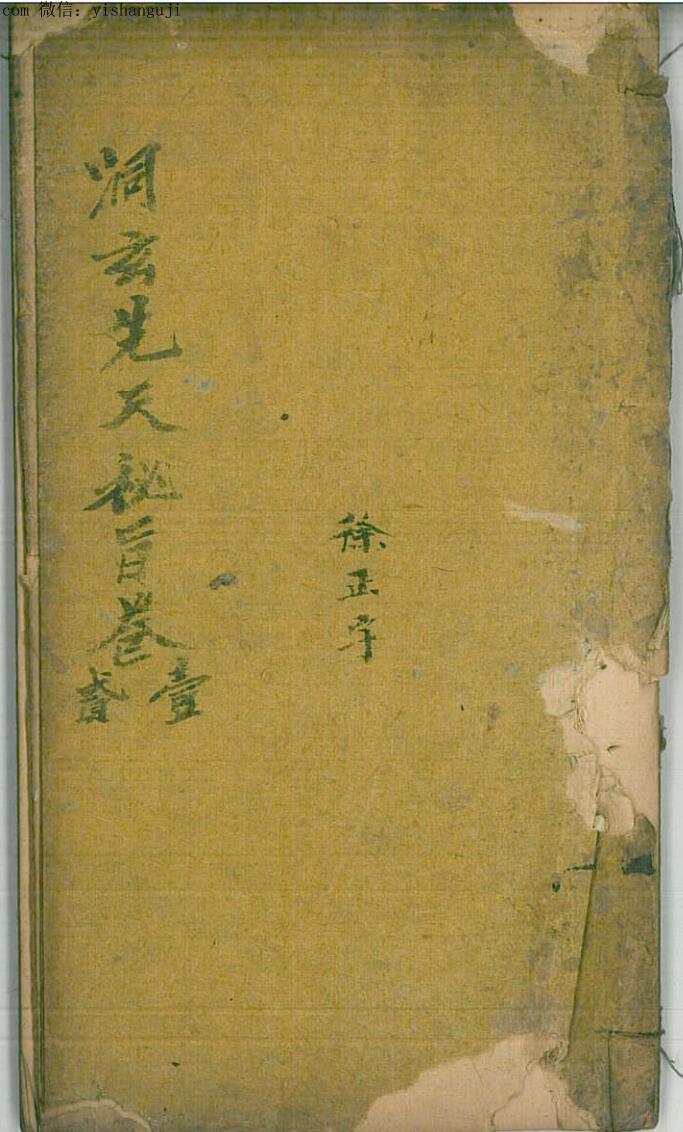 com 微信：yishanguji
徐正字
洞玄先天秘旨卷
壹
貳